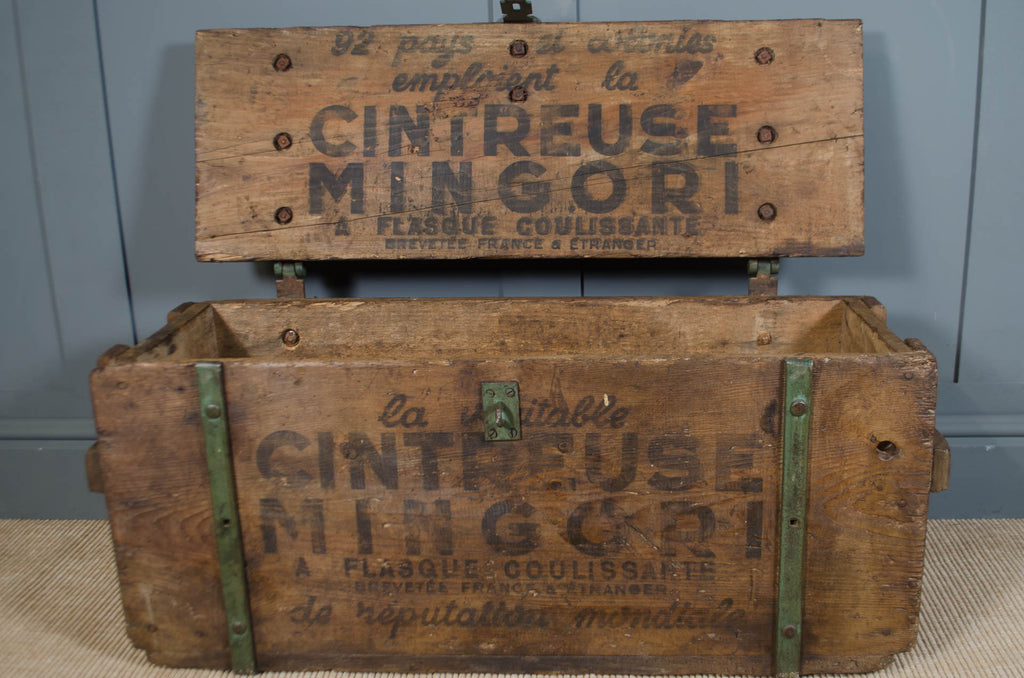 92 pays et colonies
emploient la
CINTREUSE
MINGORI
A FLASQUE COULISSANTE
BREVETÉE FRANCE & ÉTRANGER
la véritable
CINTREUSE
MINGORI
A FLASQUE COULISSANTE
BREVETÉE FRANCE & ÉTRANGER
de réputation mondiale